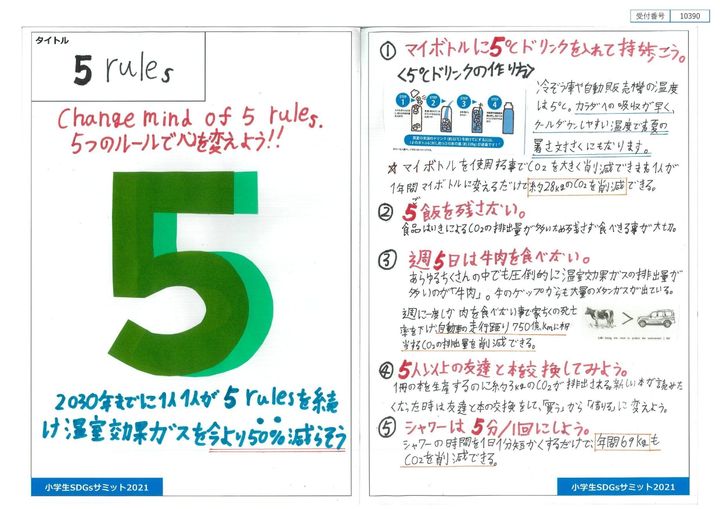 受付番号 10390
タイトル
5 rules
Change mind of 5 rules.
5つのルールで心を変えよう!!
5
2030年までに1人1人が5 rulesを続
け温室効果ガスを今より50%減らそう
小学生SDGsサミット2021
① マイボトルに5℃ドリンクを入れて持ち歩こう。
<5℃ドリンクの作り方>
冷ぞう車や自動販売機の温度
は5℃。カラダへの吸収が早く、
クールダウンしやすい温度で真夏の
暑さ対さくにもなります。
☆マイボトルを使用する事でCO2を大きく削減できます1人が
1年間マイボトルに変えるだけで約28kgのCO2を削減できる。
② 5飯を残さない。
ご
食品はいきによるCO2の排出量が多いため残さず食べきる事が大切。
③ 週5日は牛肉を食べない。
あらゆるちくさんの中でも圧倒的に温室効果ガスの排出量が
多いのが「牛肉」。牛のゲップからも大量のメタンガスが出ている。
週に一度しか肉を食べない事で家ちくの死亡
率を下げ自動車の走行距り750億kmに相
当するCO2の排出量を削減できる。
>
④ 5人以上の友達と本を交換してみよう。
1冊の本を生産するのに約3kgのCO2が排出される。新しい本が読みた
くなった時は友達と本の交換をして、「買う」から「借りる」に変えよう。
⑤ シャワーは5分/1回にしよう。
シャワーの時間を1日1分短かくするだけで、年間69kgも
CO2を削減できる。
小学生SDGsサミット2021